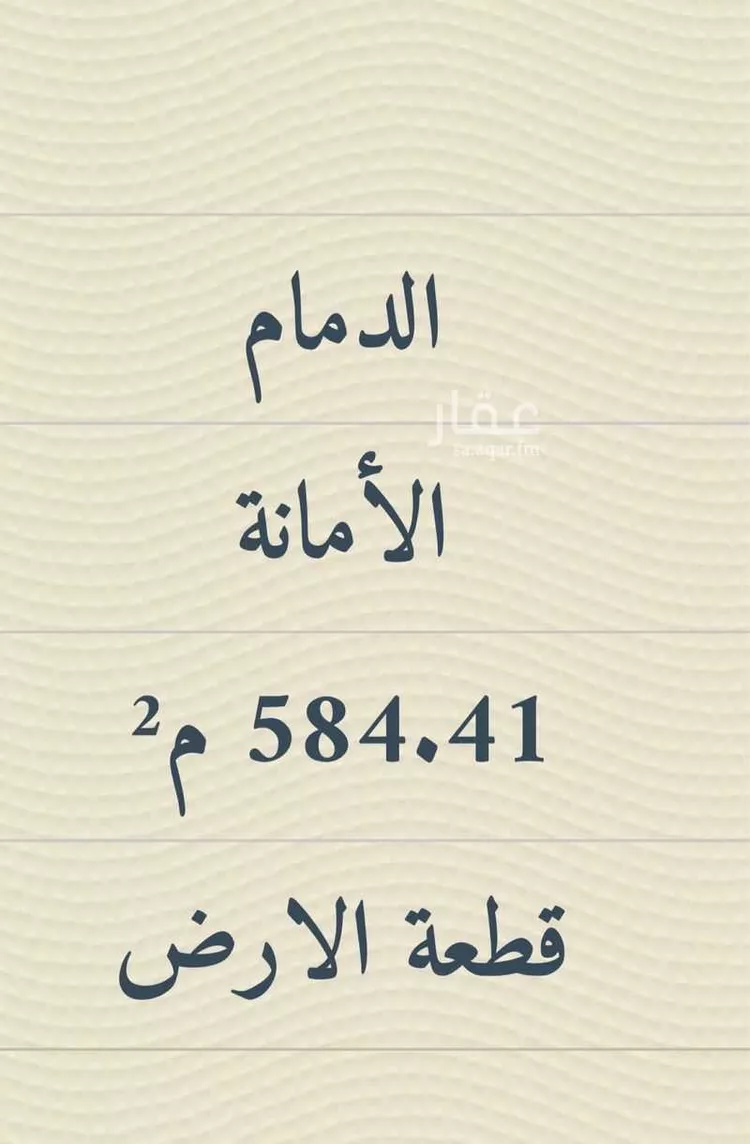 الدمام
عقار
sa.aqar.fm
الأمانة
584.41 م²
قطعة الارض